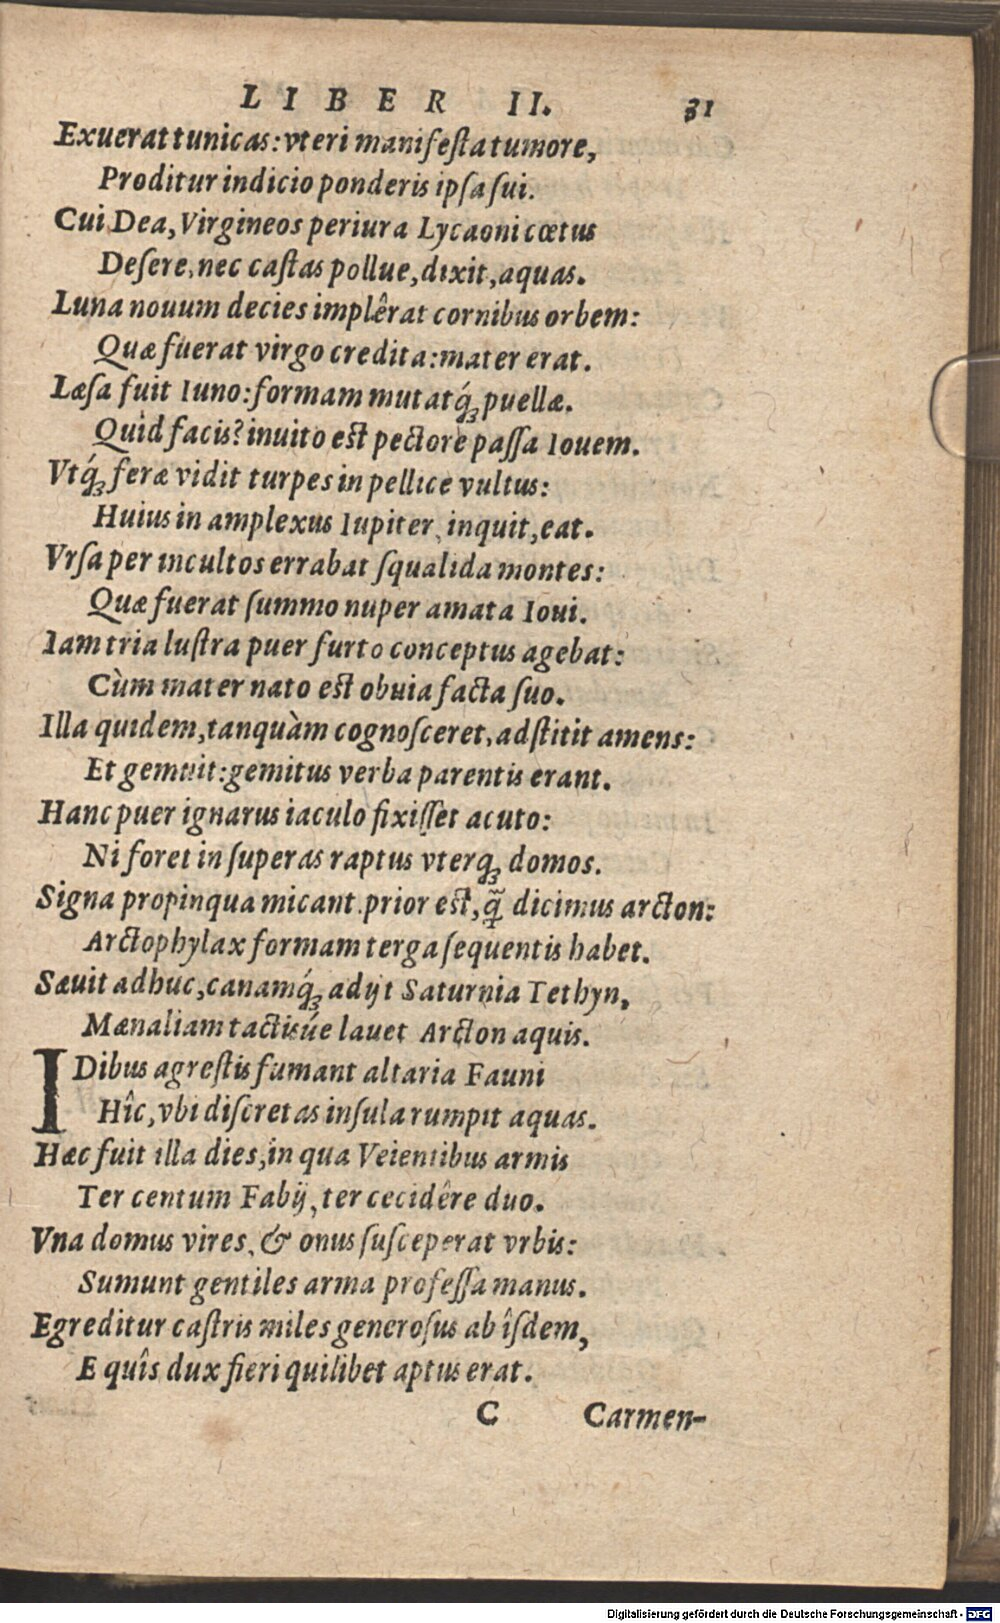 LIBER II. 31
Exuerat tunicas: vteri manifesta tumore,
Proditur indicio ponderis ipsa sui.
Cui Dea, Virgineos periura Lycaoni cœtus
Desere, nec castas pollue, dixit, aquas.
Luna nouum decies implêrat cornibus orbem:
Quæ fuerat virgo credita: mater erat.
Læsa fuit Iuno: formam mutatq́; puellæ.
Quid facis? inuito est pectore passa Iouem.
Vtq́; feræ vidit turpes in pellice vultus:
Huius in amplexus Iupiter, inquit, eat.
Vrsa per incultos errabat squalida montes:
Quæ fuerat summo nuper amata Ioui.
Iam tria lustra puer furto conceptus agebat:
Cùm mater nato est obuia facta suo.
Illa quidem, tanquàm cognosceret, adstitit amens:
Et gemuit: gemitus verba parentis erant.
Hanc puer ignarus iaculo fixisset acuto:
Ni foret in superas raptus vterq; domos.
Signa propinqua micant. prior est, q̃ dicimus arcton:
Arctophylax formam terga sequentis habet.
Sæuit adhuc, canamq́; adijt Saturnia Tethyn,
Mænaliam tactis úe lauet Arcton aquis.
IDibus agrestis fumant altaria Fauni
Hîc, vbi discretas insula rumpit aquas.
Hæc fuit illa dies, in qua Veientibus armis
Ter centum Fabij, ter cecidêre duo.
Vna domus vires, & onus susceperat vrbis:
Sumunt gentiles arma professa manus.
Egreditur castris miles generosus ab îsdem,
E quîs dux fieri quilibet aptus erat.
C Carmen-
Digitalisierung gefördert durch die Deutsche Forschungsgemeinschaft - DFG